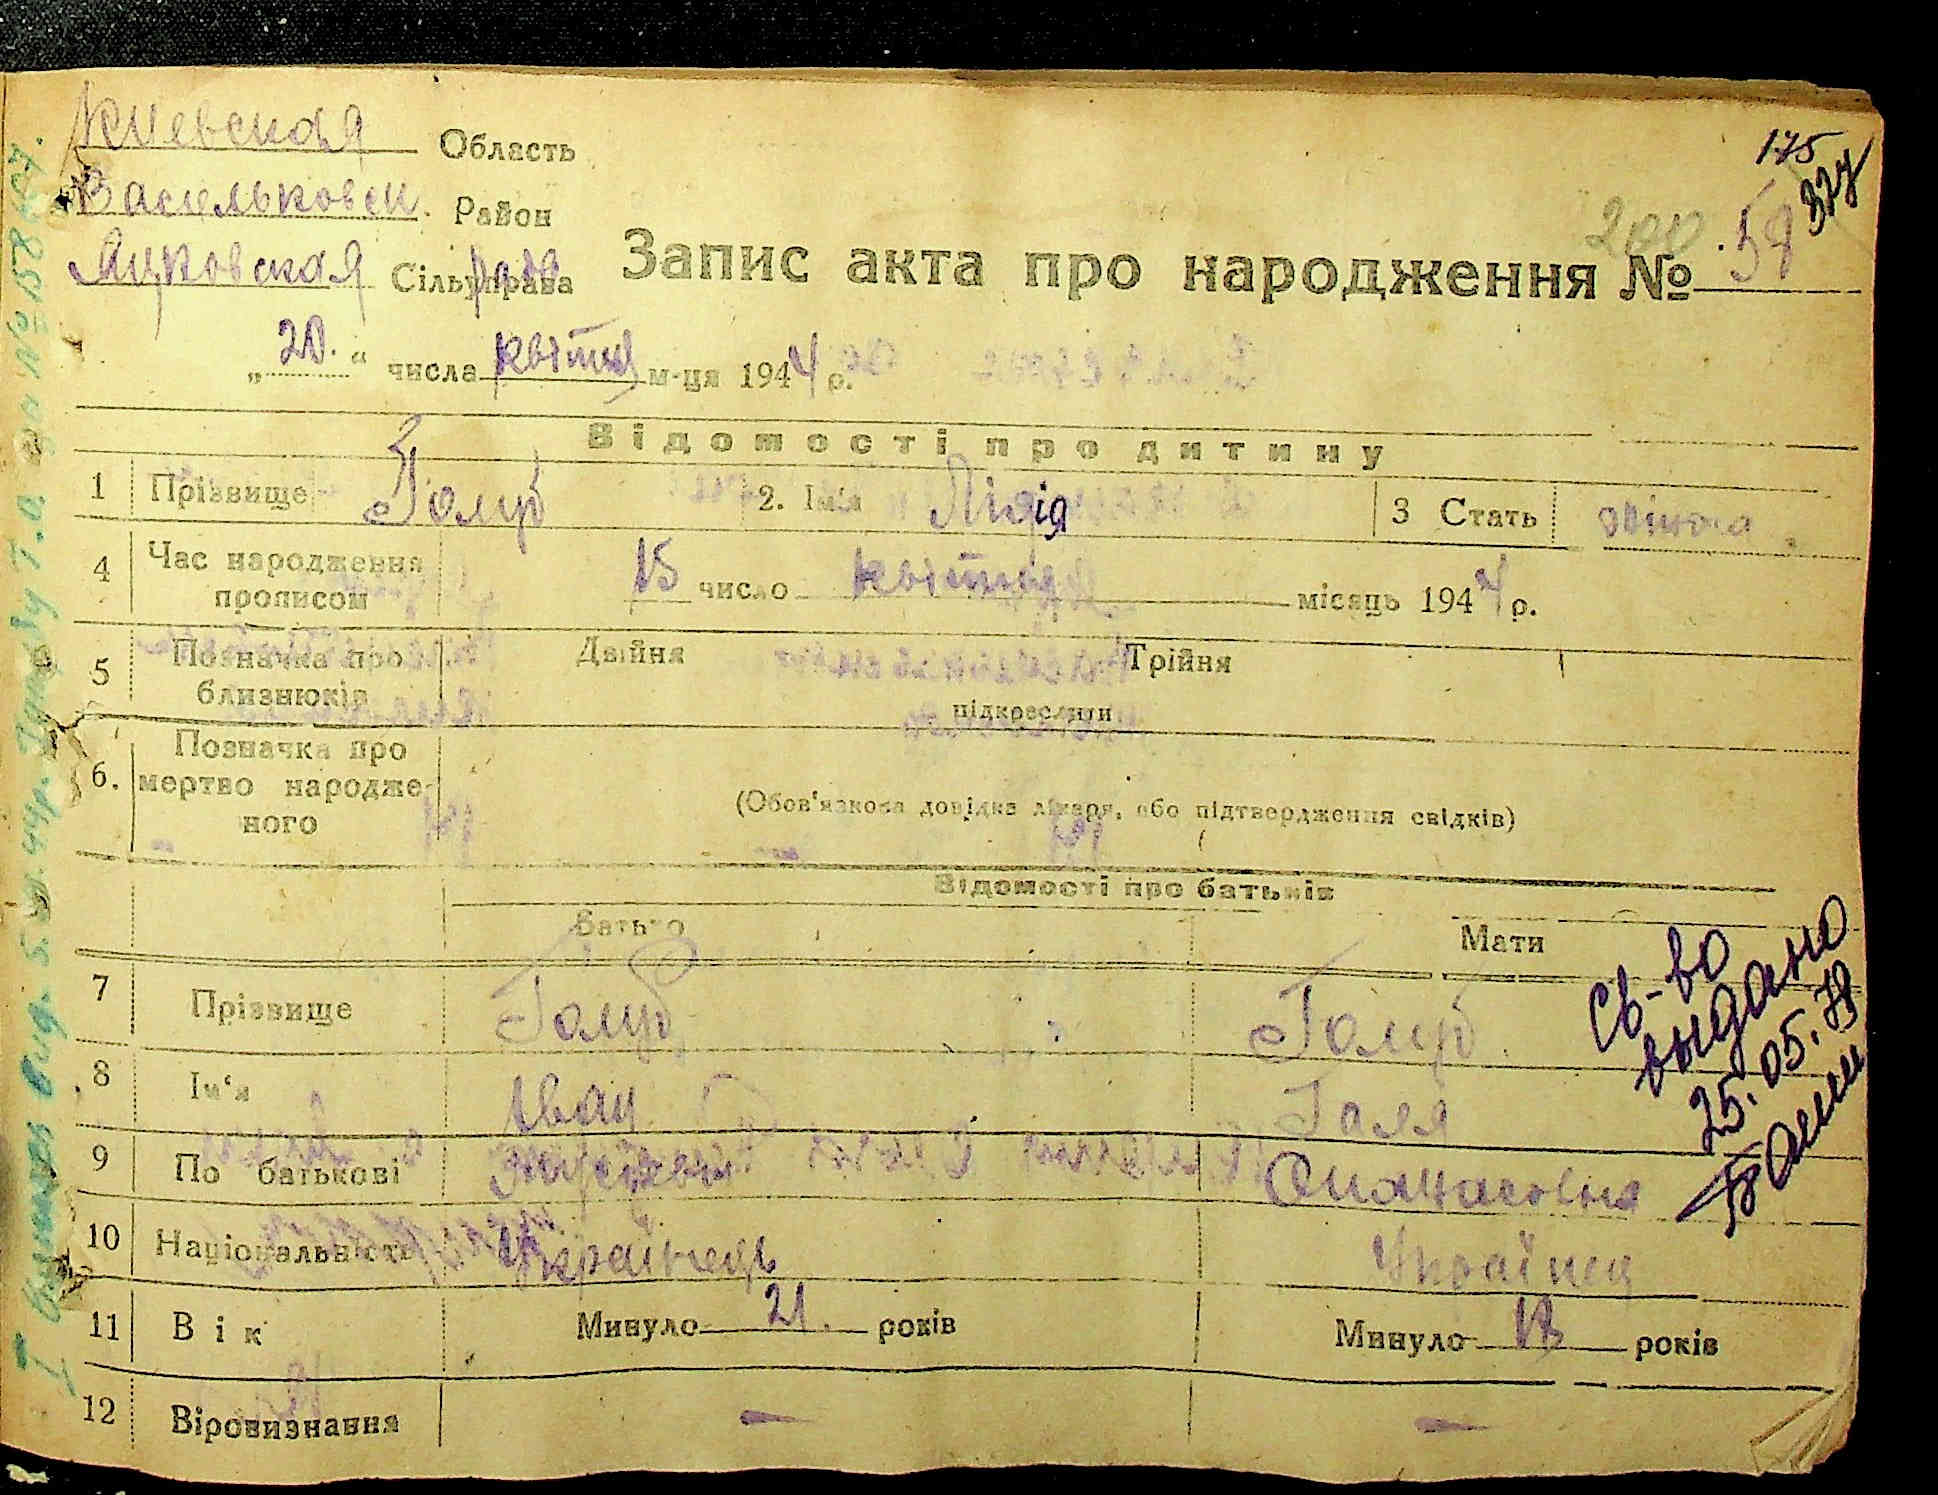 Киевская Область
175
Васильковск. Район
327
200
Сільуправа рада
Запис акта про народження № 59
„20.“ числа квітня м-ця 1944 р.
Відомості про дитину
1 Прізвище Голуб 2. Ім'я Лідія 3 Стать жіноча
4 Час народження прописом 15 число квітня місяць 1944 р.
5 Позначка про близнюків Двійня Трійня
підкреслити
6. Позначка про мертво народженого
(Обов'язкова довідка лікаря, або підтвердження свідків)
Відомості про батьків
Батько Мати
7 Прізвище Голуб Голуб
8 Ім'я Іван Галя
9 По батькові
10 Національність Українець Українец
11 Вік Минуло 21. років Минуло 18 років
12 Віровизнання — —
Св-во
выдано
25.05.78